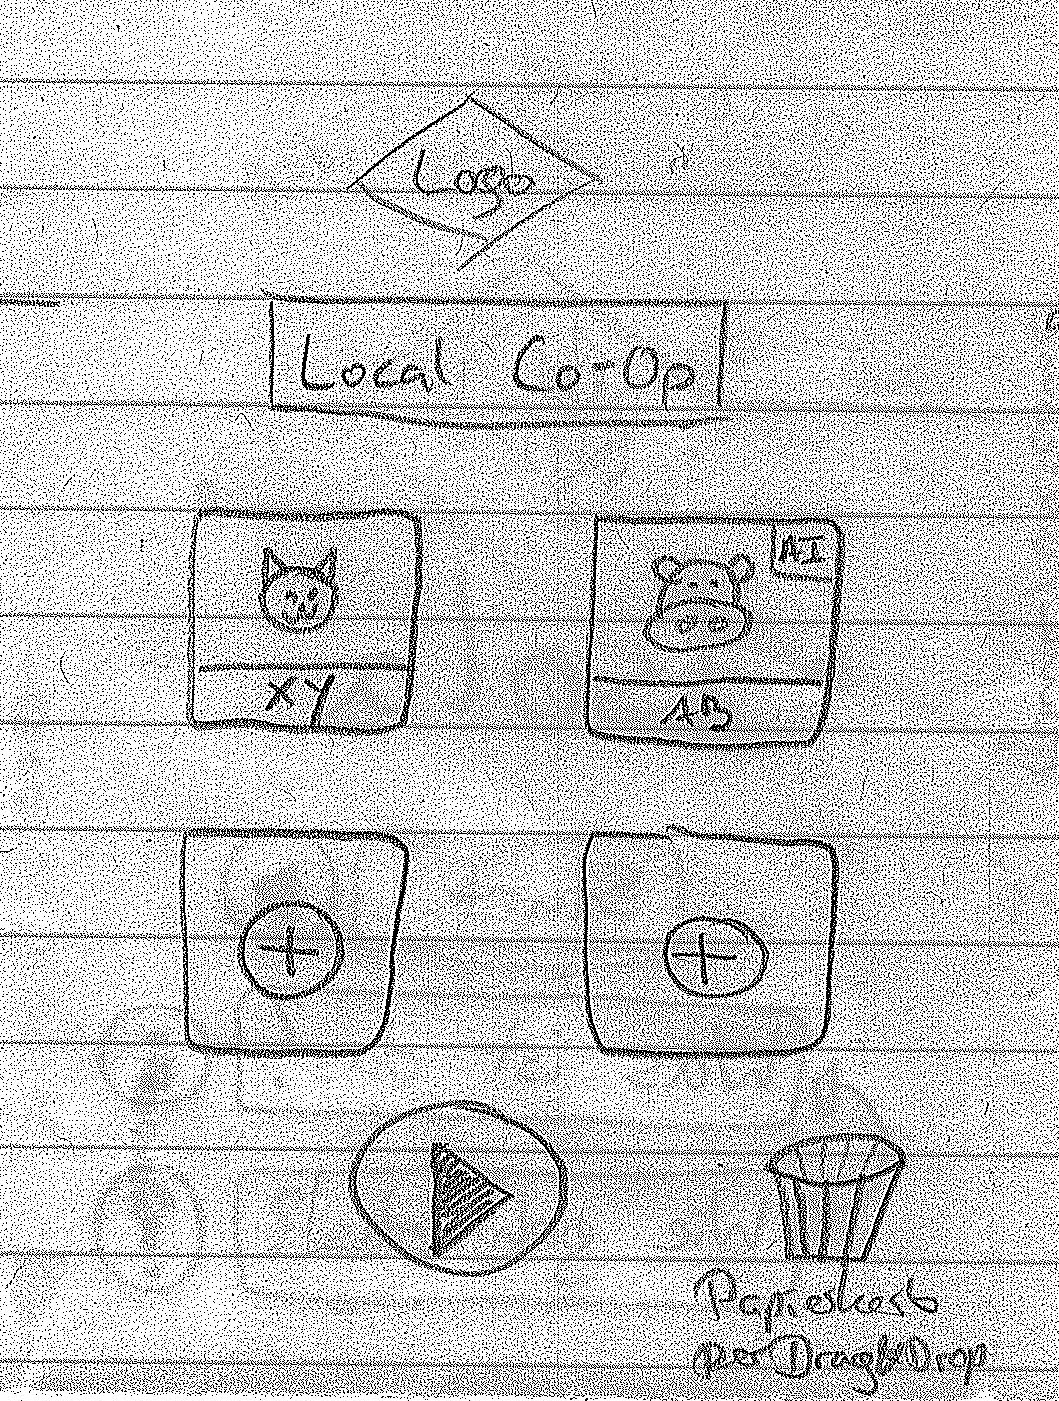 Logo
Local Co-Op
AI
XY
AB
Papierkorb
per Drag&Drop